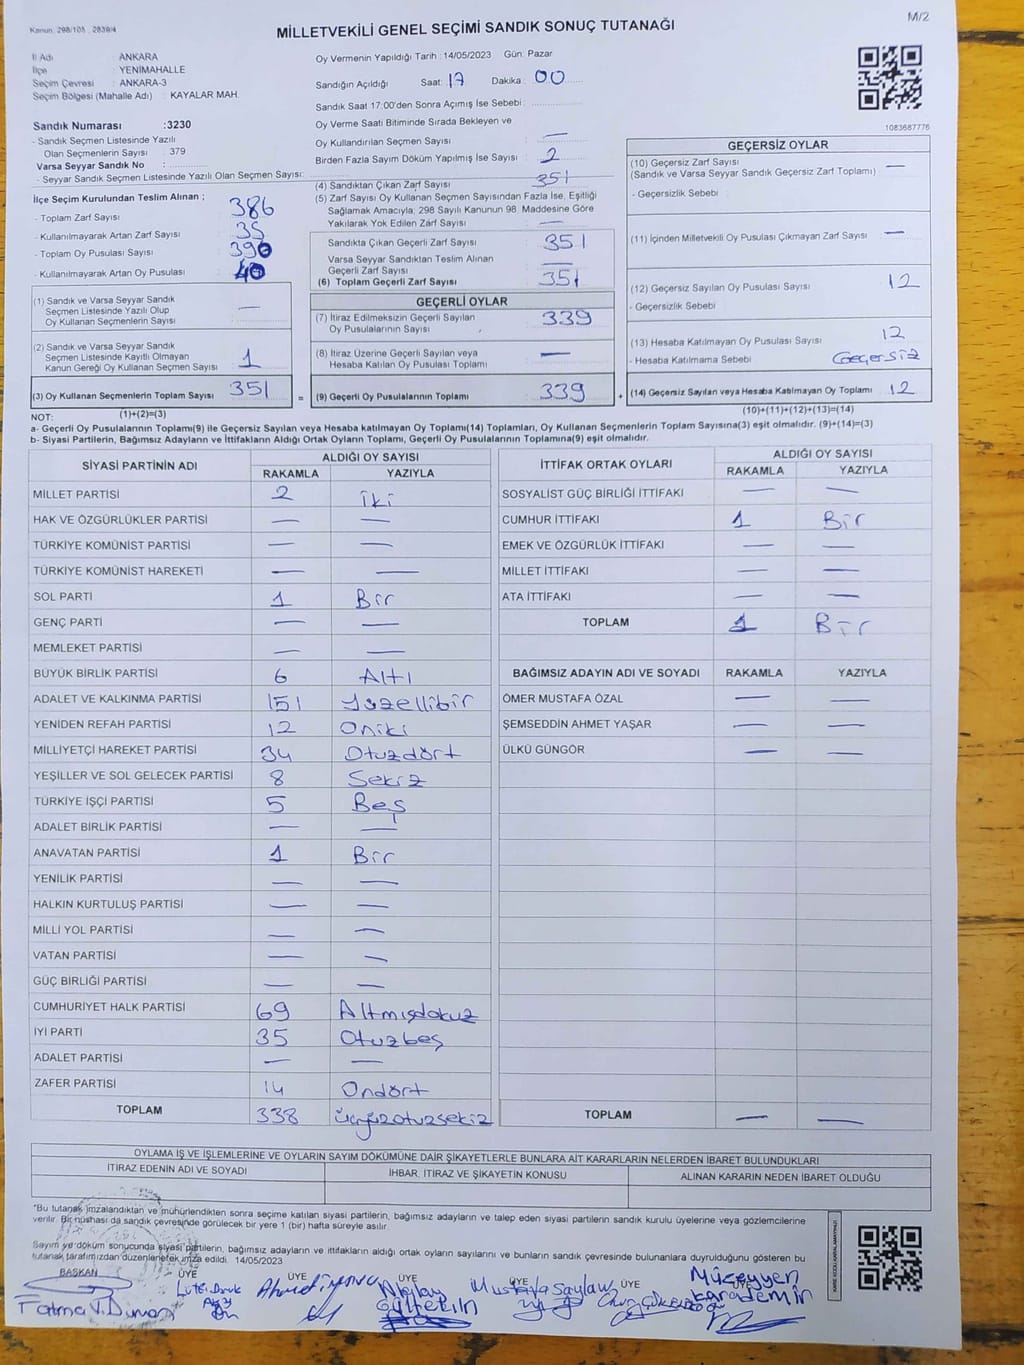 Kanun. 298/105 , 2839/4
M/2
MİLLETVEKİLİ GENEL SEÇİMİ SANDIK SONUÇ TUTANAĞI
İl Adı : ANKARA
İlçe : YENİMAHALLE
Seçim Çevresi : ANKARA-3
Seçim Bölgesi (Mahalle Adı) : KAYALAR MAH.
Oy Vermenin Yapıldığı Tarih : 14/05/2023 Gün: Pazar
Sandığın Açıldığı Saat: 17 Dakika : 00
Sandık Saat 17:00'den Sonra Açımış İse Sebebi :
Sandık Numarası :3230
- Sandık Seçmen Listesinde Yazılı
Olan Seçmenlerin Sayısı : 379
Varsa Seyyar Sandık No :
- Seyyar Sandık Seçmen Listesinde Yazılı Olan Seçmen Sayısı:
Oy Verme Saati Bitiminde Sırada Bekleyen ve
Oy Kullandırılan Seçmen Sayısı : —
Birden Fazla Sayım Döküm Yapılmış İse Sayısı : 2
1083687776
İlçe Seçim Kurulundan Teslim Alınan ;
- Toplam Zarf Sayısı : 386
- Kullanılmayarak Artan Zarf Sayısı : 35
- Toplam Oy Pusulası Sayısı : 390
- Kullanılmayarak Artan Oy Pusulası : 40
(1) Sandık ve Varsa Seyyar Sandık
Seçmen Listesinde Yazılı Olup
Oy Kullanan Seçmenlerin Sayısı : —
(2) Sandık ve Varsa Seyyar Sandık
Seçmen Listesinde Kayıtlı Olmayan
Kanun Gereği Oy Kullanan Seçmen Sayısı : 1
(3) Oy Kullanan Seçmenlerin Toplam Sayısı : 351
(4) Sandıktan Çıkan Zarf Sayısı : 351
(5) Zarf Sayısı Oy Kullanan Seçmen Sayısından Fazla İse, Eşitliği
Sağlamak Amacıyla; 298 Sayılı Kanunun 98. Maddesine Göre
Yakılarak Yok Edilen Zarf Sayısı : —
Sandıkta Çıkan Geçerli Zarf Sayısı : 351
Varsa Seyyar Sandıktan Teslim Alınan
Geçerli Zarf Sayısı : —
(6) Toplam Geçerli Zarf Sayısı : 351
GEÇERLİ OYLAR
(7) İtiraz Edilmeksizin Geçerli Sayılan
Oy Pusulalarının Sayısı : 339
(8) İtiraz Üzerine Geçerli Sayılan veya
Hesaba Katılan Oy Pusulası Toplamı : —
= (9) Geçerli Oy Pusulalarının Toplamı : 339
GEÇERSİZ OYLAR
(10) Geçersiz Zarf Sayısı : —
(Sandık ve Varsa Seyyar Sandık Geçersiz Zarf Toplamı)
- Geçersizlik Sebebi :
(11) İçinden Milletvekili Oy Pusulası Çıkmayan Zarf Sayısı : —
(12) Geçersiz Sayılan Oy Pusulası Sayısı : 12
- Geçersizlik Sebebi :
(13) Hesaba Katılmayan Oy Pusulası Sayısı : 12
- Hesaba Katılmama Sebebi : Geçersiz
+ (14) Geçersiz Sayılan veya Hesaba Katılmayan Oy Toplamı : 12
NOT: (1)+(2)=(3)
(10)+(11)+(12)+(13)=(14)
a- Geçerli Oy Pusulalarının Toplamı(9) ile Geçersiz Sayılan veya Hesaba katılmayan Oy Toplamı(14) Toplamları, Oy Kullanan Seçmenlerin Toplam Sayısına(3) eşit olmalıdır. (9)+(14)=(3)
b- Siyasi Partilerin, Bağımsız Adayların ve İttifakların Aldığı Ortak Oyların Toplamı, Geçerli Oy Pusulalarının Toplamına(9) eşit olmalıdır.
SİYASİ PARTİNİN ADI ALDIĞI OY SAYISI
RAKAMLA YAZIYLA
MİLLET PARTİSİ 2 İki
HAK VE ÖZGÜRLÜKLER PARTİSİ — —
TÜRKİYE KOMÜNİST PARTİSİ — —
TÜRKİYE KOMÜNİST HAREKETİ — —
SOL PARTİ 1 Bir
GENÇ PARTİ — —
MEMLEKET PARTİSİ — —
BÜYÜK BİRLİK PARTİSİ 6 Altı
ADALET VE KALKINMA PARTİSİ 151 Yüzellibir
YENİDEN REFAH PARTİSİ 12 Oniki
MİLLİYETÇİ HAREKET PARTİSİ 34 Otuzdört
YEŞİLLER VE SOL GELECEK PARTİSİ 8 Sekiz
TÜRKİYE İŞÇİ PARTİSİ 5 Beş
ADALET BİRLİK PARTİSİ — —
ANAVATAN PARTİSİ 1 Bir
YENİLİK PARTİSİ — —
HALKIN KURTULUŞ PARTİSİ — —
MİLLİ YOL PARTİSİ — —
VATAN PARTİSİ — —
GÜÇ BİRLİĞİ PARTİSİ — —
CUMHURİYET HALK PARTİSİ 69 Altmışdokuz
İYİ PARTİ 35 Otuzbeş
ADALET PARTİSİ — —
ZAFER PARTİSİ 14 Ondört
TOPLAM 338 üçyüzotuzsekiz
İTTİFAK ORTAK OYLARI ALDIĞI OY SAYISI
RAKAMLA YAZIYLA
SOSYALİST GÜÇ BİRLİĞİ İTTİFAKI — —
CUMHUR İTTİFAKI 1 Bir
EMEK VE ÖZGÜRLÜK İTTİFAKI — —
MİLLET İTTİFAKI — —
ATA İTTİFAKI — —
TOPLAM 1 Bir
BAĞIMSIZ ADAYIN ADI VE SOYADI RAKAMLA YAZIYLA
ÖMER MUSTAFA ÖZAL — —
ŞEMSEDDİN AHMET YAŞAR — —
ÜLKÜ GÜNGÖR — —
TOPLAM — —
OYLAMA İŞ VE İŞLEMLERİNE VE OYLARIN SAYIM DÖKÜMÜNE DAİR ŞİKAYETLERLE BUNLARA AİT KARARLARIN NELERDEN İBARET BULUNDUKLARI
İTİRAZ EDENİN ADI VE SOYADI İHBAR, İTİRAZ VE ŞİKAYETİN KONUSU ALINAN KARARIN NEDEN İBARET OLDUĞU
"Bu tutanak imzalandıktan ve mühürlendikten sonra seçime katılan siyasi partilerin, bağımsız adayların ve talep eden siyasi partilerin sandık kurulu üyelerine veya gözlemcilerine
verilir. Bir nüshası da sandık çevresinde görülecek bir yere 1 (bir) hafta süreyle asılır.
Sayım ve döküm sonucunda siyasi partilerin, bağımsız adayların ve ittifakların aldığı ortak oyların sayılarını ve bunların sandık çevresinde bulunanlara duyrulduğunu gösteren bu
tutanak tarafımızdan düzenlenerek imza edildi. 14/05/2023
KARE KODU KARALAMAYINIZ!
BAŞKAN ÜYE ÜYE ÜYE ÜYE ÜYE ÜYE
Nilay Gültekin
Mustafa Saylav
Müzeyyen Karademir